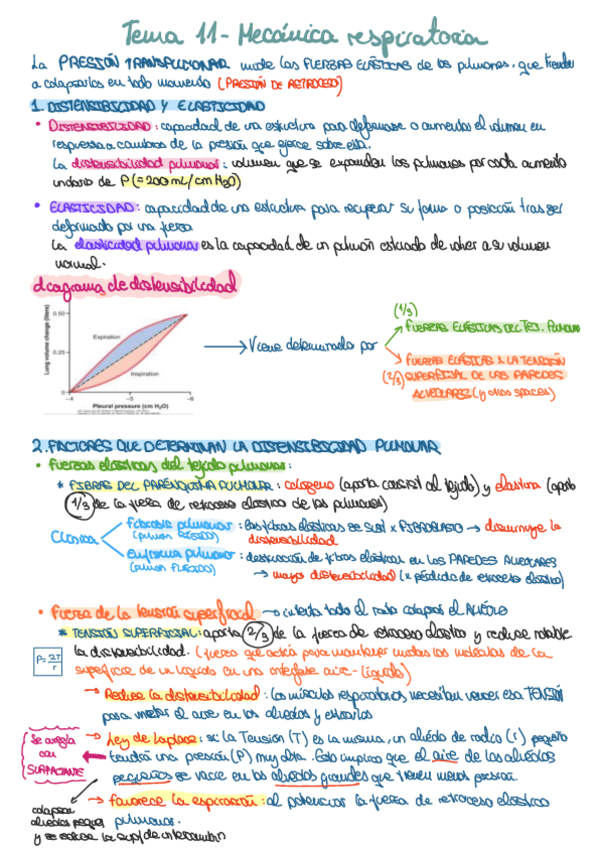 Tema 11- Mecánica respiratoria
La PRESIÓN TRANSPULMONAR mide las FUERZAS ELÁSTICAS de los pulmones, que tienden
a colapsarlos en todo momento (PRESIÓN DE RETROCESO)
1. DISTENSIBILIDAD Y ELASTICIDAD
• DISTENSIBILIDAD: capacidad de una estructura para deformarse o aumentar el volumen en
respuesta a cambios de la presión que ejerce sobre ella.
La distensibilidad pulmonar: volumen que se expanden los pulmones por cada aumento
unitario de P (= 200 mL/cm H2O)
• ELASTICIDAD: capacidad de una estructura para recuperar su forma o posición tras ser
deformada por una fuerza
La elasticidad pulmonar es la capacidad de un pulmón estirado de volver a su volumen
normal.
diagrama de distensibilidad
Lung volume change (liters)
0.50
0.25
0
Expiration
Inspiration
-4
-5
-6
Pleural pressure (cm H2O)
→ Viene determinado por
(1/3)
FUERZAS ELÁSTICAS DEL TEJ. PULMONAR
FUERZAS ELÁSTICAS X LA TENSIÓN
(2/3) SUPERFICIAL DE LAS PAREDES
ALVEOLARES (y otros spaces)
2. FACTORES QUE DETERMINAN LA DISTENSIBILIDAD PULMONAR
• Fuerzas elásticas del tejido pulmonar:
* FIBRAS DEL PARÉNQUIMA PULMONAR: colágeno (aporta al tejido) y elastina (aporta
1/3 de la fuerza de retroceso elástico de los pulmones)
Clínica
fibrosis pulmonar: las fibras elásticas se sust x FIBROBLASTO → disminuye la
(pulmón RÍGIDO)
distensibilidad
enfisema pulmonar: destrucción de fibras elásticas en las PAREDES ALVEOLARES
(pulmón FLÁCIDO)
→ mayor distensibilidad (x pérdida de retroceso elástico)
• Fuerza de la tensión superficial → intenta todo el rato colapsar el ALVÉOLO
* TENSIÓN SUPERFICIAL: aporta 2/3 de la fuerza de retroceso elástico y reduce notable.
la distensibilidad. (fuerza que actúa para mantener unidas las moléculas de la
superficie de un líquido en una interfase aire-líquido)
P = 2T/r
→ Reduce la distensibilidad: los músculos respiratorios necesitan vencer esa TENSIÓN
para meter el aire en los alvéolos y estirarlos
→ Ley de Laplace: si la Tensión (T) es la misma, un alvéolo de radio (r) pequeño
tendrá una presión (P) muy alta. Esto implica que el aire de los alvéolos
pequeños se vacíe en los alvéolos grandes que tienen menos presión.
Se arregla
con
SURFACTANTE
→ Favorece la espiración: al potenciar la fuerza de retroceso elástico
pulmonar.
colapsar
alvéolos pequeñ.
y se reduce la sup. de intercambio